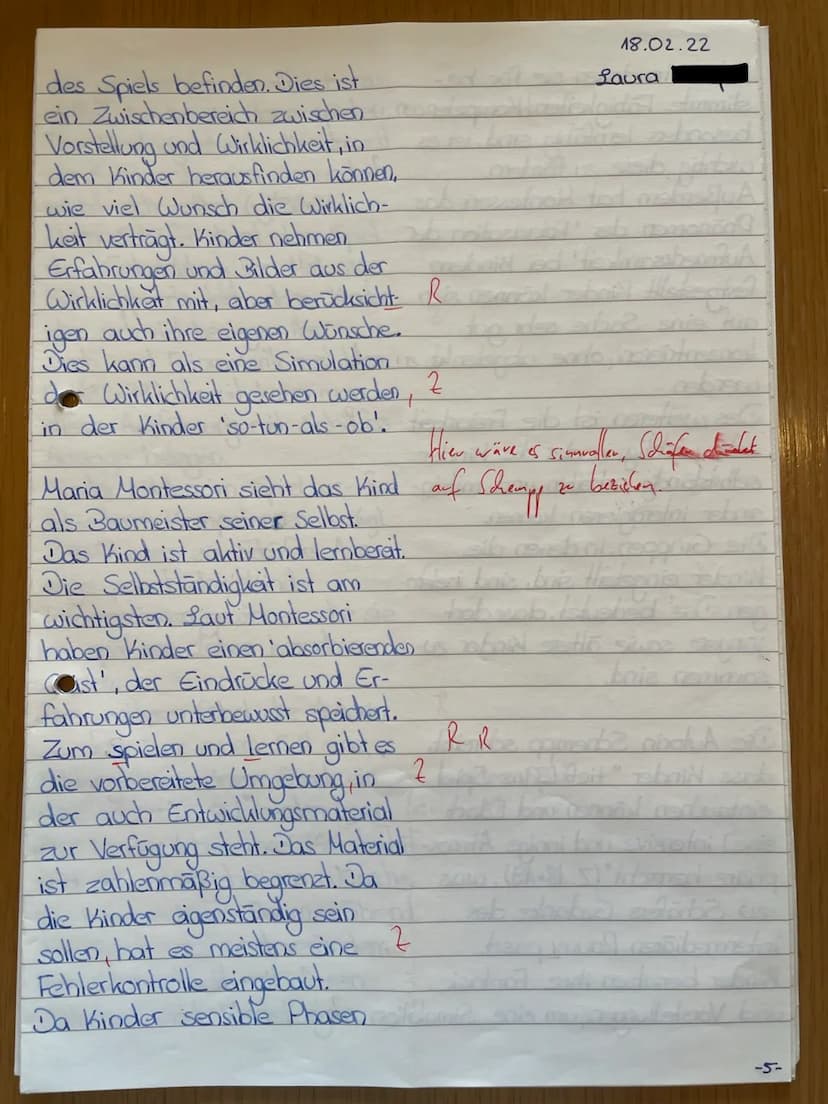 18.02.22
Laura
des Spiels befinden. Dies ist
ein Zwischenbereich zwischen
Vorstellung und Wirklichkeit, in
dem Kinder herausfinden können,
wie viel Wunsch die Wirklich-
keit verträgt. Kinder nehmen
Erfahrungen und Bilder aus der
Wirklichkeit mit, aber berücksicht- R
igen auch ihre eigenen Wünsche.
Dies kann als eine Simulation
der Wirklichkeit gesehen werden, Z
in der Kinder 'so-tun-als-ob'.
Hier wäre es sinnvoller, Schäfer direkt
auf Schempp zu beziehen.
Maria Montessori sieht das Kind
als Baumeister seiner Selbst.
Das Kind ist aktiv und lernbereit.
Die Selbstständigkeit ist am
wichtigsten. Laut Montessori
haben Kinder einen 'absorbierenden
Geist', der Eindrücke und Er-
fahrungen unterbewusst speichert.
Zum spielen und lernen gibt es R R
die vorbereitete Umgebung, in Z
der auch Entwicklungsmaterial
zur Verfügung steht. Das Material
ist zahlenmäßig begrenzt. Da
die Kinder eigenständig sein
sollen, hat es meistens eine Z
Fehlerkontrolle eingebaut.
Da Kinder sensible Phasen
-5-